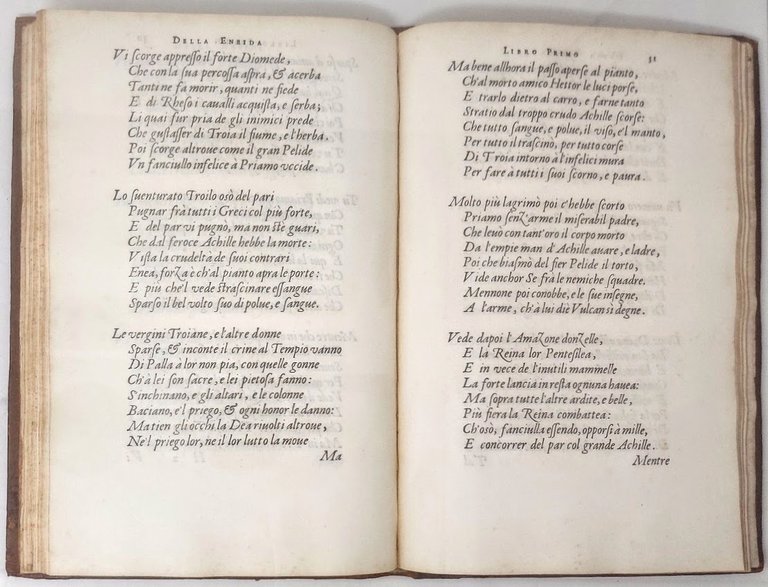 DELLA ENEIDA
Vi scorge appresso il forte Diomede,
Che con la sua percossa aspra, & acerba
Tanti ne fa morir, quanti ne fiede
E di Rheso i caualli acquista, e serba;
Li quai fur pria de gli inimici prede
Che gustasser di Troia il fiume, e l'herba.
Poi scorge altroue come il gran Pelide
Vn fanciullo infelice à Priamo vccide.
Lo suenturato Troilo osò del pari
Pugnar frà tutti i Greci col più forte,
E del par vi pugnò, ma non stè guari,
Che dal feroce Achille hebbe la morte:
Vista la crudeltà de suoi contrari
Enea, forza è ch'al pianto apra le porte:
E più che'l vede strascinare essangue
Sparso il bel volto suo di polue, e sangue.
Le vergini Troiane, e l'altre donne
Sparse, & inconte il crine al Tempio vanno
Di Palla à lor non pia, con quelle gonne
Ch'à lei son sacre, e lei pietosa fanno:
S'inchinano, e gli altari, e le colonne
Baciano, e'l priego, & ogni honor le danno:
Ma tien gli occhi la Dea riuolti altroue,
Ne'l priego lor, ne il lor lutto la moue
Ma
LIBRO PRIMO 31
Ma bene allhora il passo aperse al pianto,
Ch'al morto amico Hettor le luci porse,
E trarlo dietro al carro, e farne tanto
Stratio dal troppo crudo Achille scorse:
Che tutto sangue, e polue, il viso, e'l manto,
Per tutto il trascinò, per tutto corse
Di Troia intorno à l'infelici mura
Per fare à tutti i suoi scorno, e paura.
Molto più lagrimò poi c'hebbe scorto
Priamo senz'arme il miserabil padre,
Che leuò con tant'oro il corpo morto
Da l'empie man d'Achille auare, e ladre,
Poi che biasmò del fier Pelide il torto,
Vide anchor Se frà le nemiche squadre.
Mennone poi conobbe, e le sue insegne,
A l'arme, ch'a lui diè Vulcan sì degne.
Vede dapoi l'Amazone donzelle,
E la Reina lor Pentesilea,
E in vece de l'inutili mammelle
La forte lancia in resta ognuna hauea:
Ma sopra tutte l'altre ardite, e belle,
Più fiera la Reina combattea:
Ch'osò, fanciulla essendo, opporsi à mille,
E concorrer del par col grande Achille.
Mentre